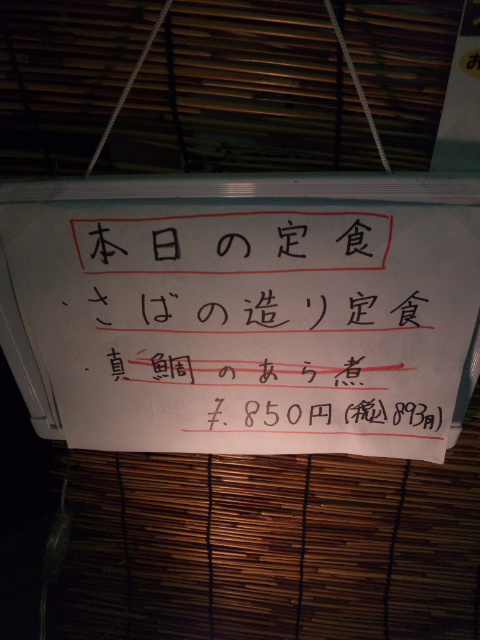 本日の定食
・さばの造り定食
・真鯛のあら煮
¥.850円(税込893円)